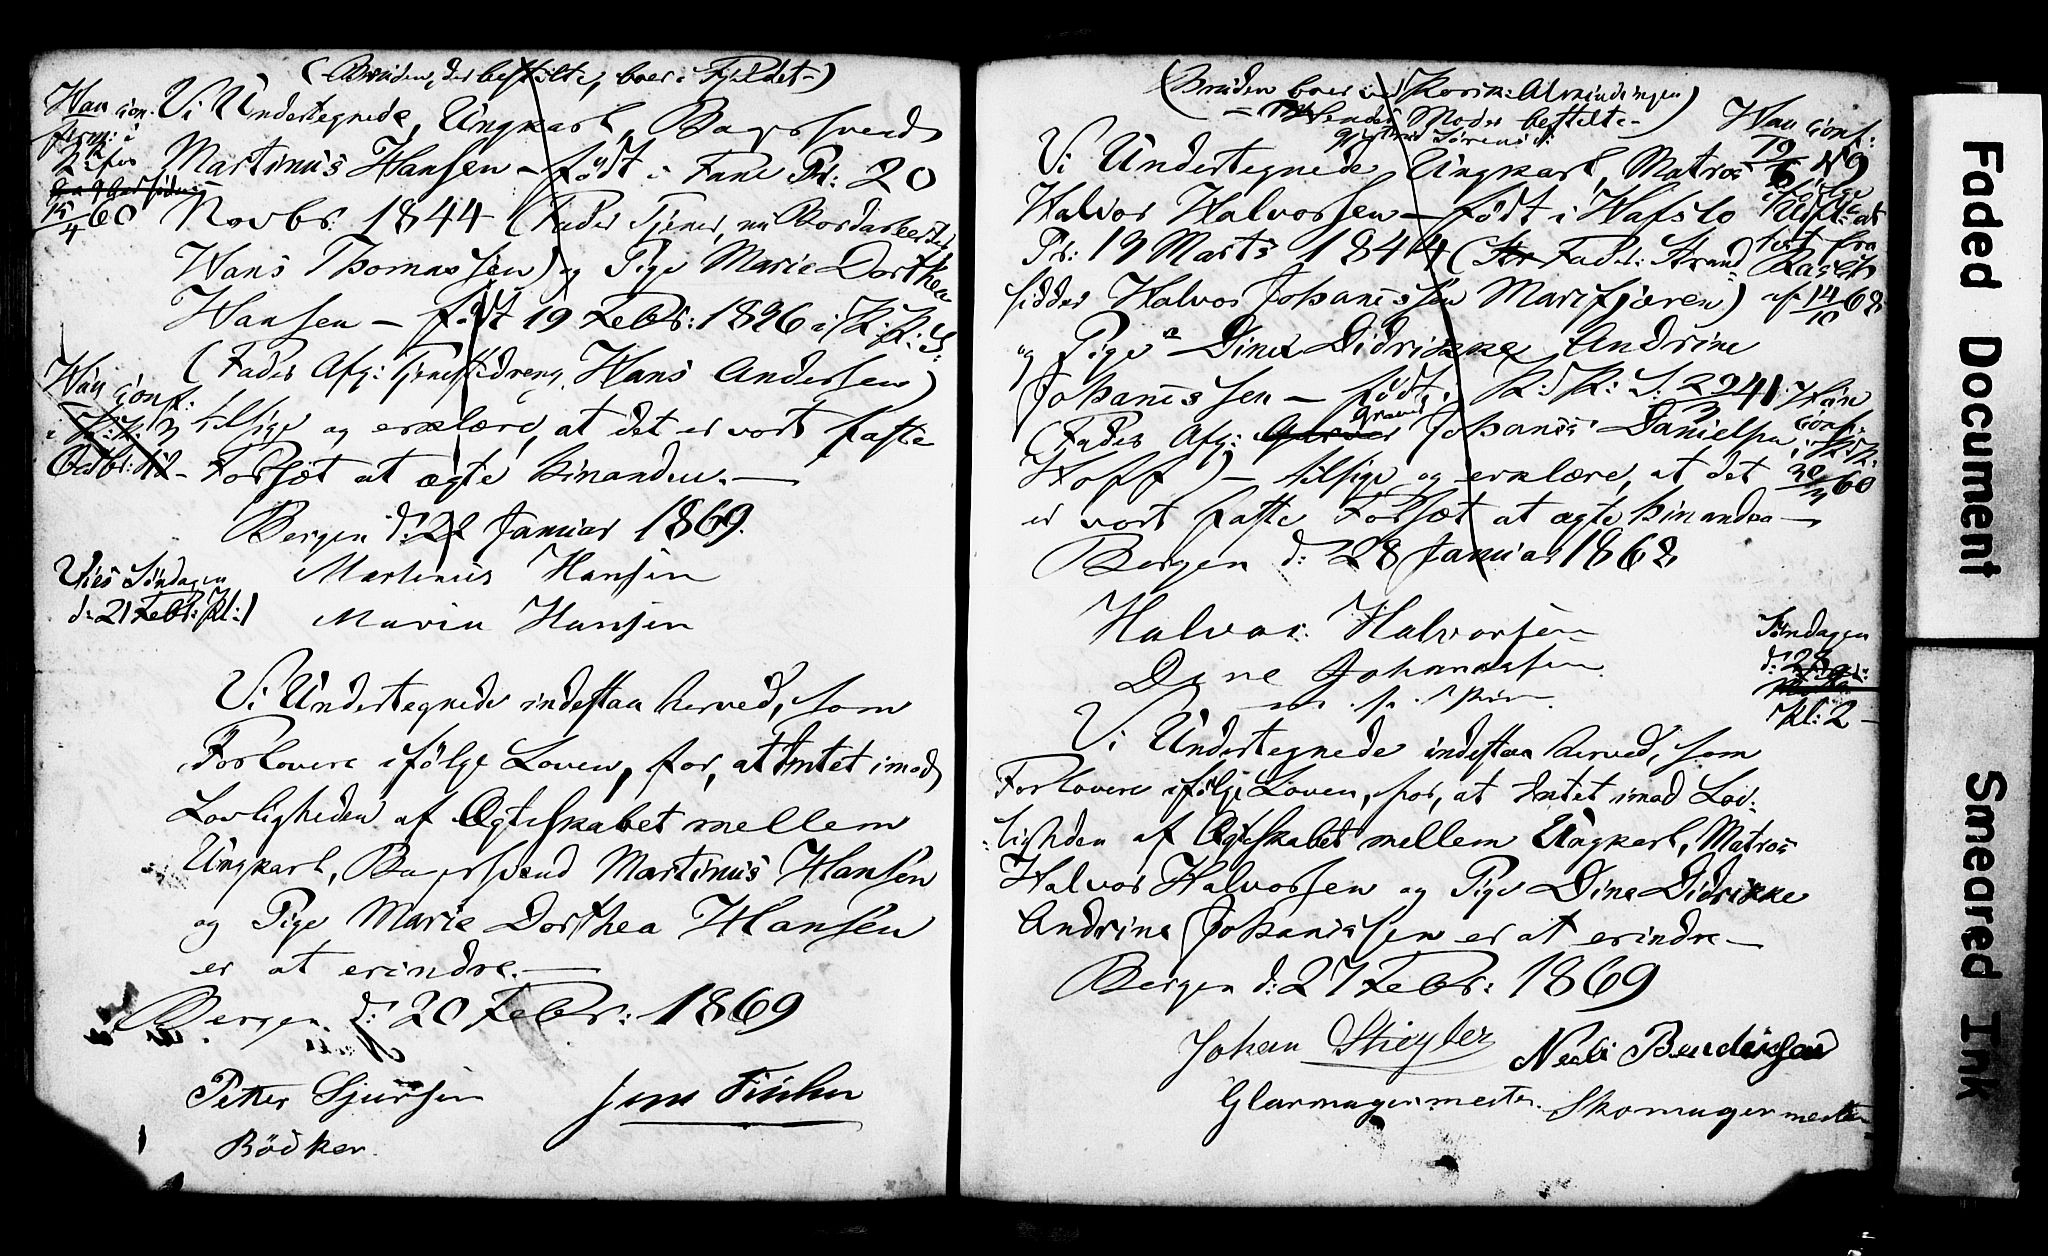 (Bruden, der bestilte, boer i Fjeldet-)
Han con-
firm: i
15/4 60
Vi Undertegnede, Ungkarl, Bagersvend
Martinus Hansen – født i Fane Pr: 20
Novbr: 1844 (Fader Tjener, nu Bordarbeider
Hans Thomassen) og Pige Marie Dorthea
Hansen – født 19 Febr: 1846 i K: K: S:
(Fader Afg: Hans Andersen)
Hun conf:
i
Octbr:
tilsige og erklære, at det er vort faste
Forsæt at ægte hinanden. —
Bergen d: 22 Januar 1869.
Martinus Hansen
Maria Hansen
Vies Søndagen
d: 21 Febr: Kl: 1
Vi Undertegnede indestaa herved, som
Forlovere ifölge Loven, for, at Intet imod
Lovligheden af Ægteskabet mellem
Ungkarl, Bagersvend Martinus Hansen
og Pige Marie Dorthea Hansen
er at erindre. —
Bergen. d: 20 Febr: 1869
Peter Sjursen
Bödker.
Jens
(Bruden boer ved Korsk: Almindingen)
= Moder bestilte –
Vi Undertegnede Ungkarl, Matros
Halvor Halvorsen – født i Hafslo
Pr: 19 Marts 1844 (Fader: Strand-
sidder Halvor Johannessen Marifjæren)
og Pige Dina Didrikke Andrine
Johannessen – født i K: K: S: 22/3 41
(Fader Afg: Graver Johannes Danielsen
Hoff) – tilsige og erklære, at det
er vort faste Forsæt at ægte hinanden —
Bergen d: 28 Januar 1868
Han conf:
ifølge
Udfl: at-
test fra
af 14/10 68
Hun
conf:
i K: K:
30/9 60
Halvor Halvorsen
Dine Johannessen
m. p. Pen.
Søndagen
d: 28
Kl: 2 –
Vi Undertegnede indestaa herved, som
Forlovere ifölge Loven, for, at Intet imod Lov-
ligheden af Ægteskabet mellem Ungkarl, Matros
Halvor Halvorsen og Pige Dina Didrikke
Andrine Johannessen er at erindre —
Bergen d: 27 Febr: 1869
Johan Stiegler
Glarmagermester.
Bendixsen
Skomagermester
Faded Document
Smeared Ink